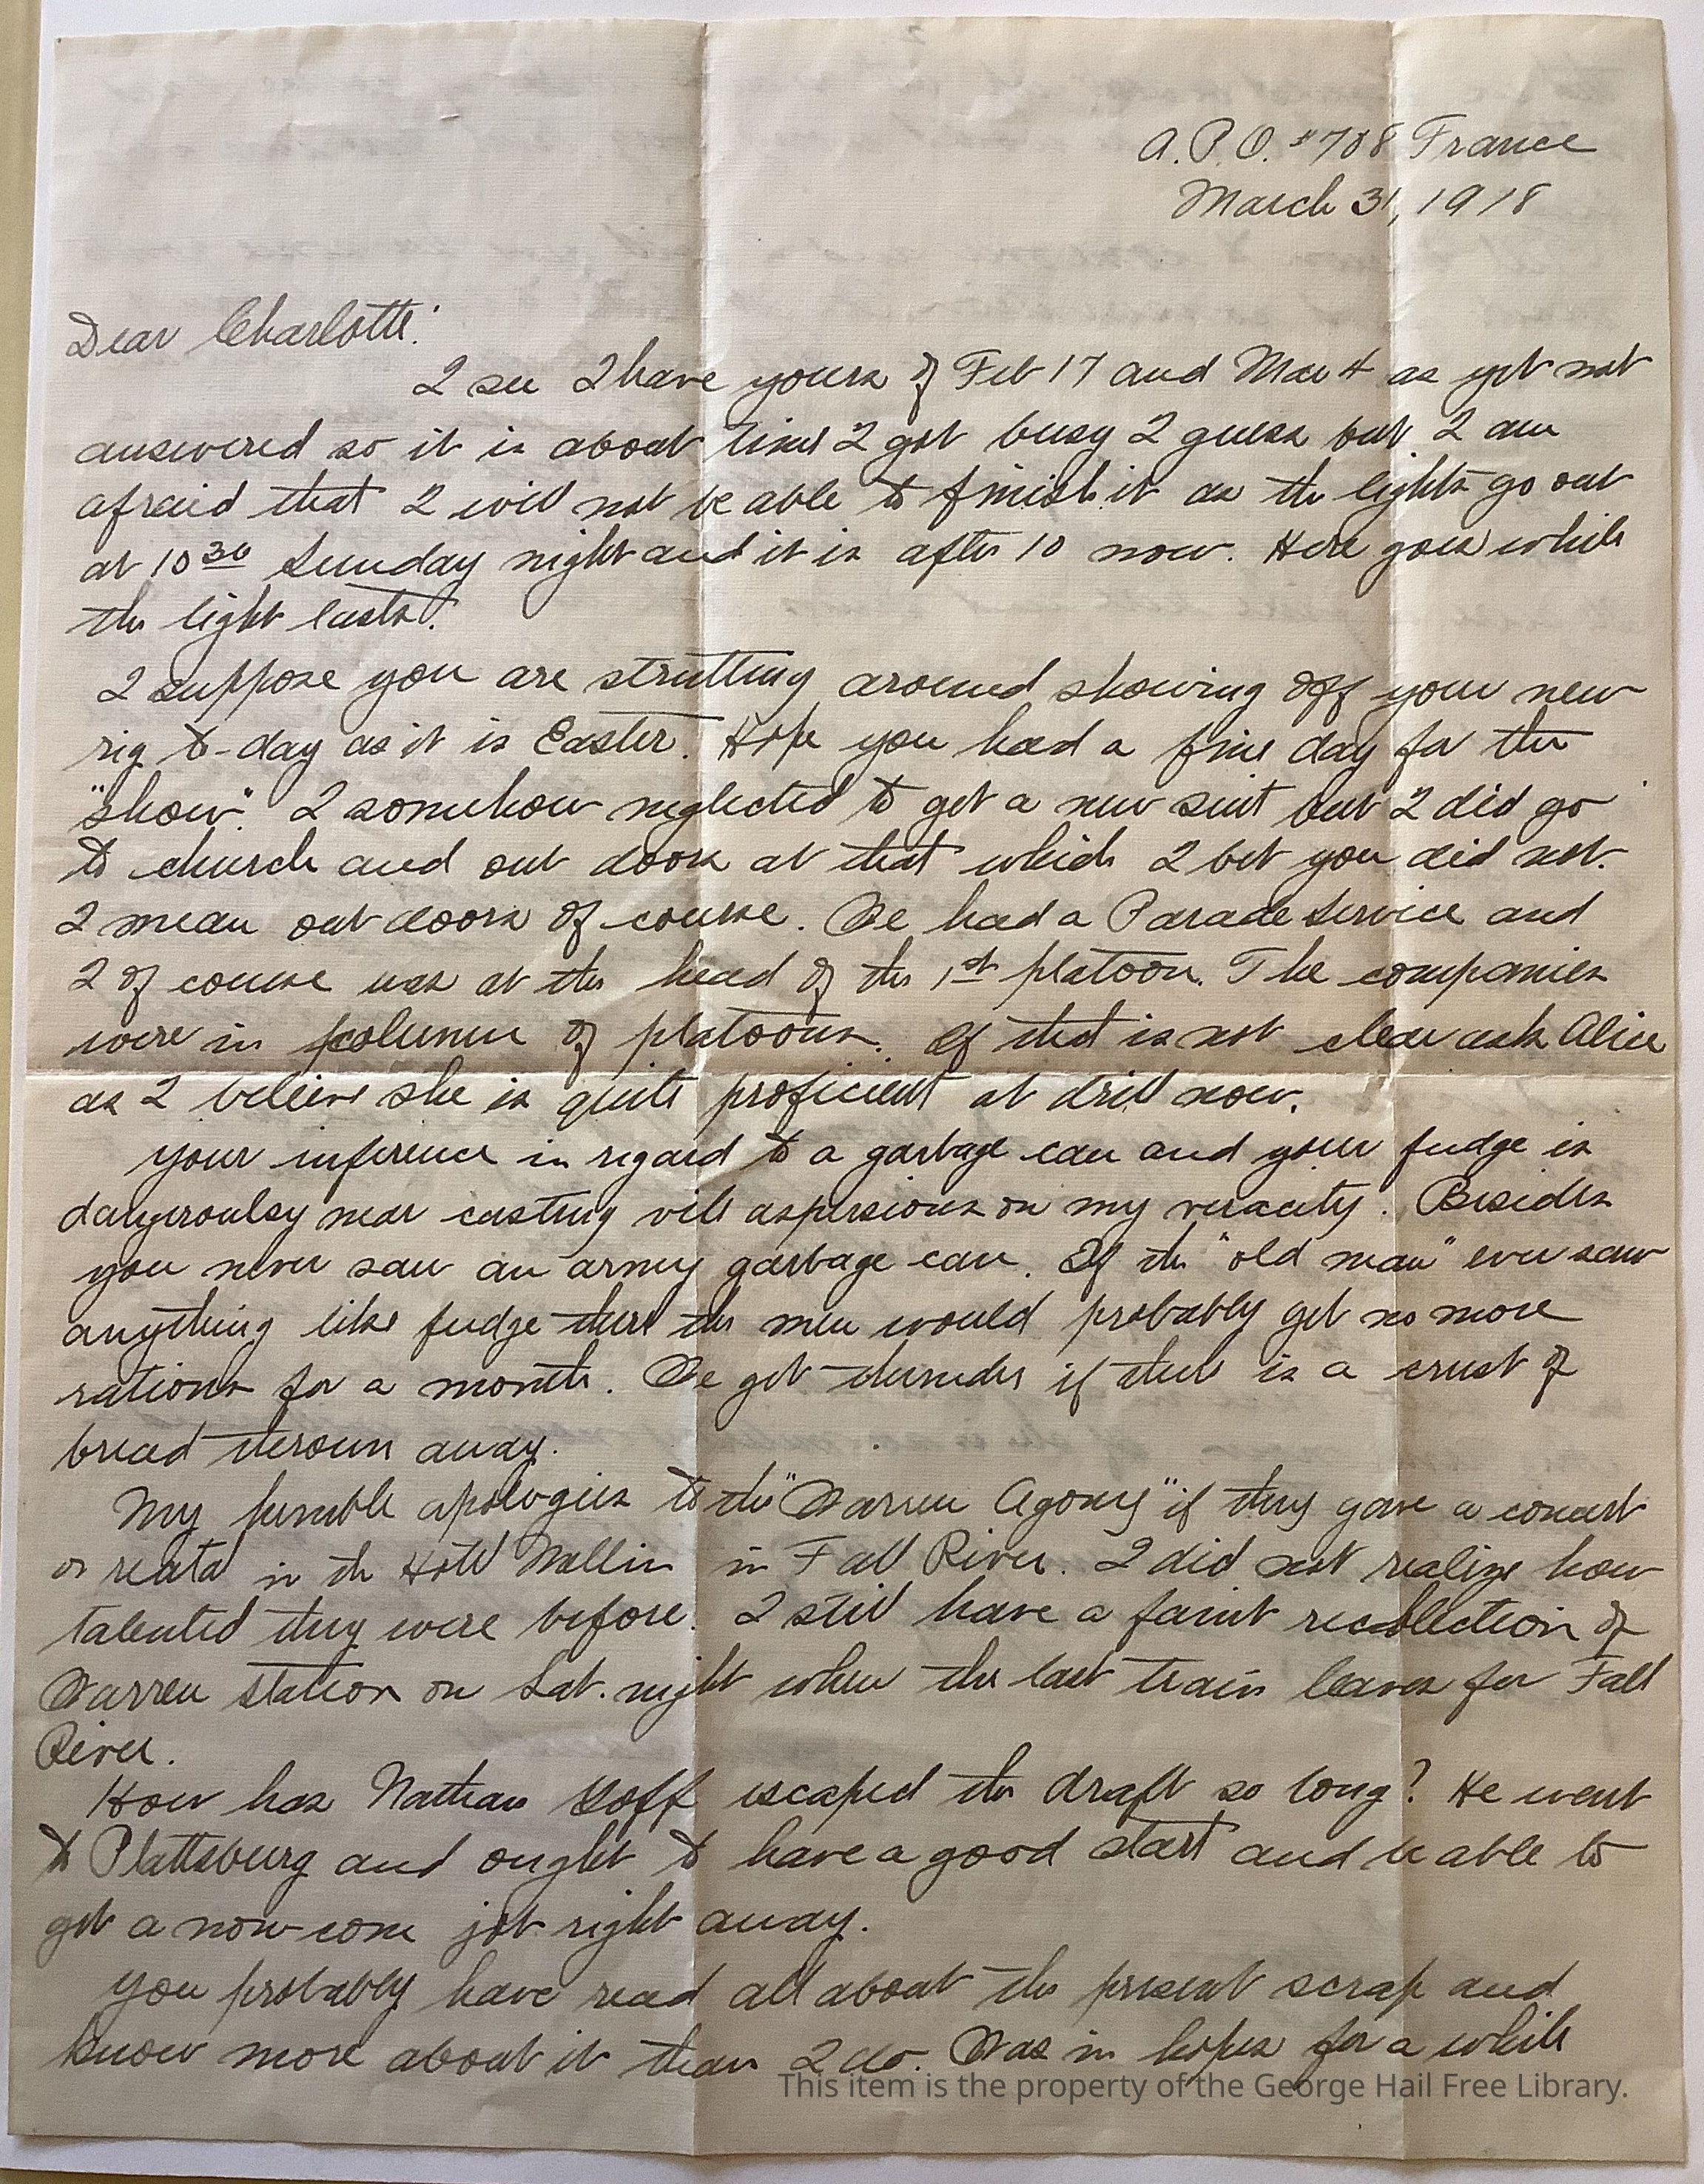 A.P.O. #708 France
March 31, 1918
Dear Charlotte:
I see I have yours of Feb 17 and Mar 4 as yet not
answered so it is about time I got busy I guess but I am
afraid that I will not be able to finish it as the lights go out
at 10 30 Sunday night and it is after 10 now. Here goes while
the light lasts.
I suppose you are strutting around showing off your new
rig to-day as it is Easter. Hope you had a fine day for the
"show". I somehow neglected to get a new suit but I did go
to church and out doors at that which I bet you did not.
I mean out doors of course. We had a Parade Service and
I of course was at the head of the 1st platoon. The companies
were in column of platoons. If that is not clear ask Alice
as I believe she is quite proficient at drill now.
Your inference in regard to a garbage can and your fudge is
dangeroulsy near casting vile aspersions on my veracity. Besides
you never saw an army garbage can. If the "old man" ever saw
anything like fudge there the men would probably get no more
rations for a month. We get thunder if there is a crust of
bread thrown away.
My humble apologies to the "Warren Agony" if they gave a concert
or recital in the Hotel Mellin in Fall River. I did not realize how
talented they were before. I still have a faint recollection of
Warren station on Sat. night when the last train leaves for Fall
River.
How has Nathan Goff escaped the draft so long? He went
to Plattsburg and ought to have a good start and be able to
get a non-com job right away.
You probably have read all about the present scrap and
know more about it than I do. Was in hopes for a while
This item is the property of the George Hail Free Library.